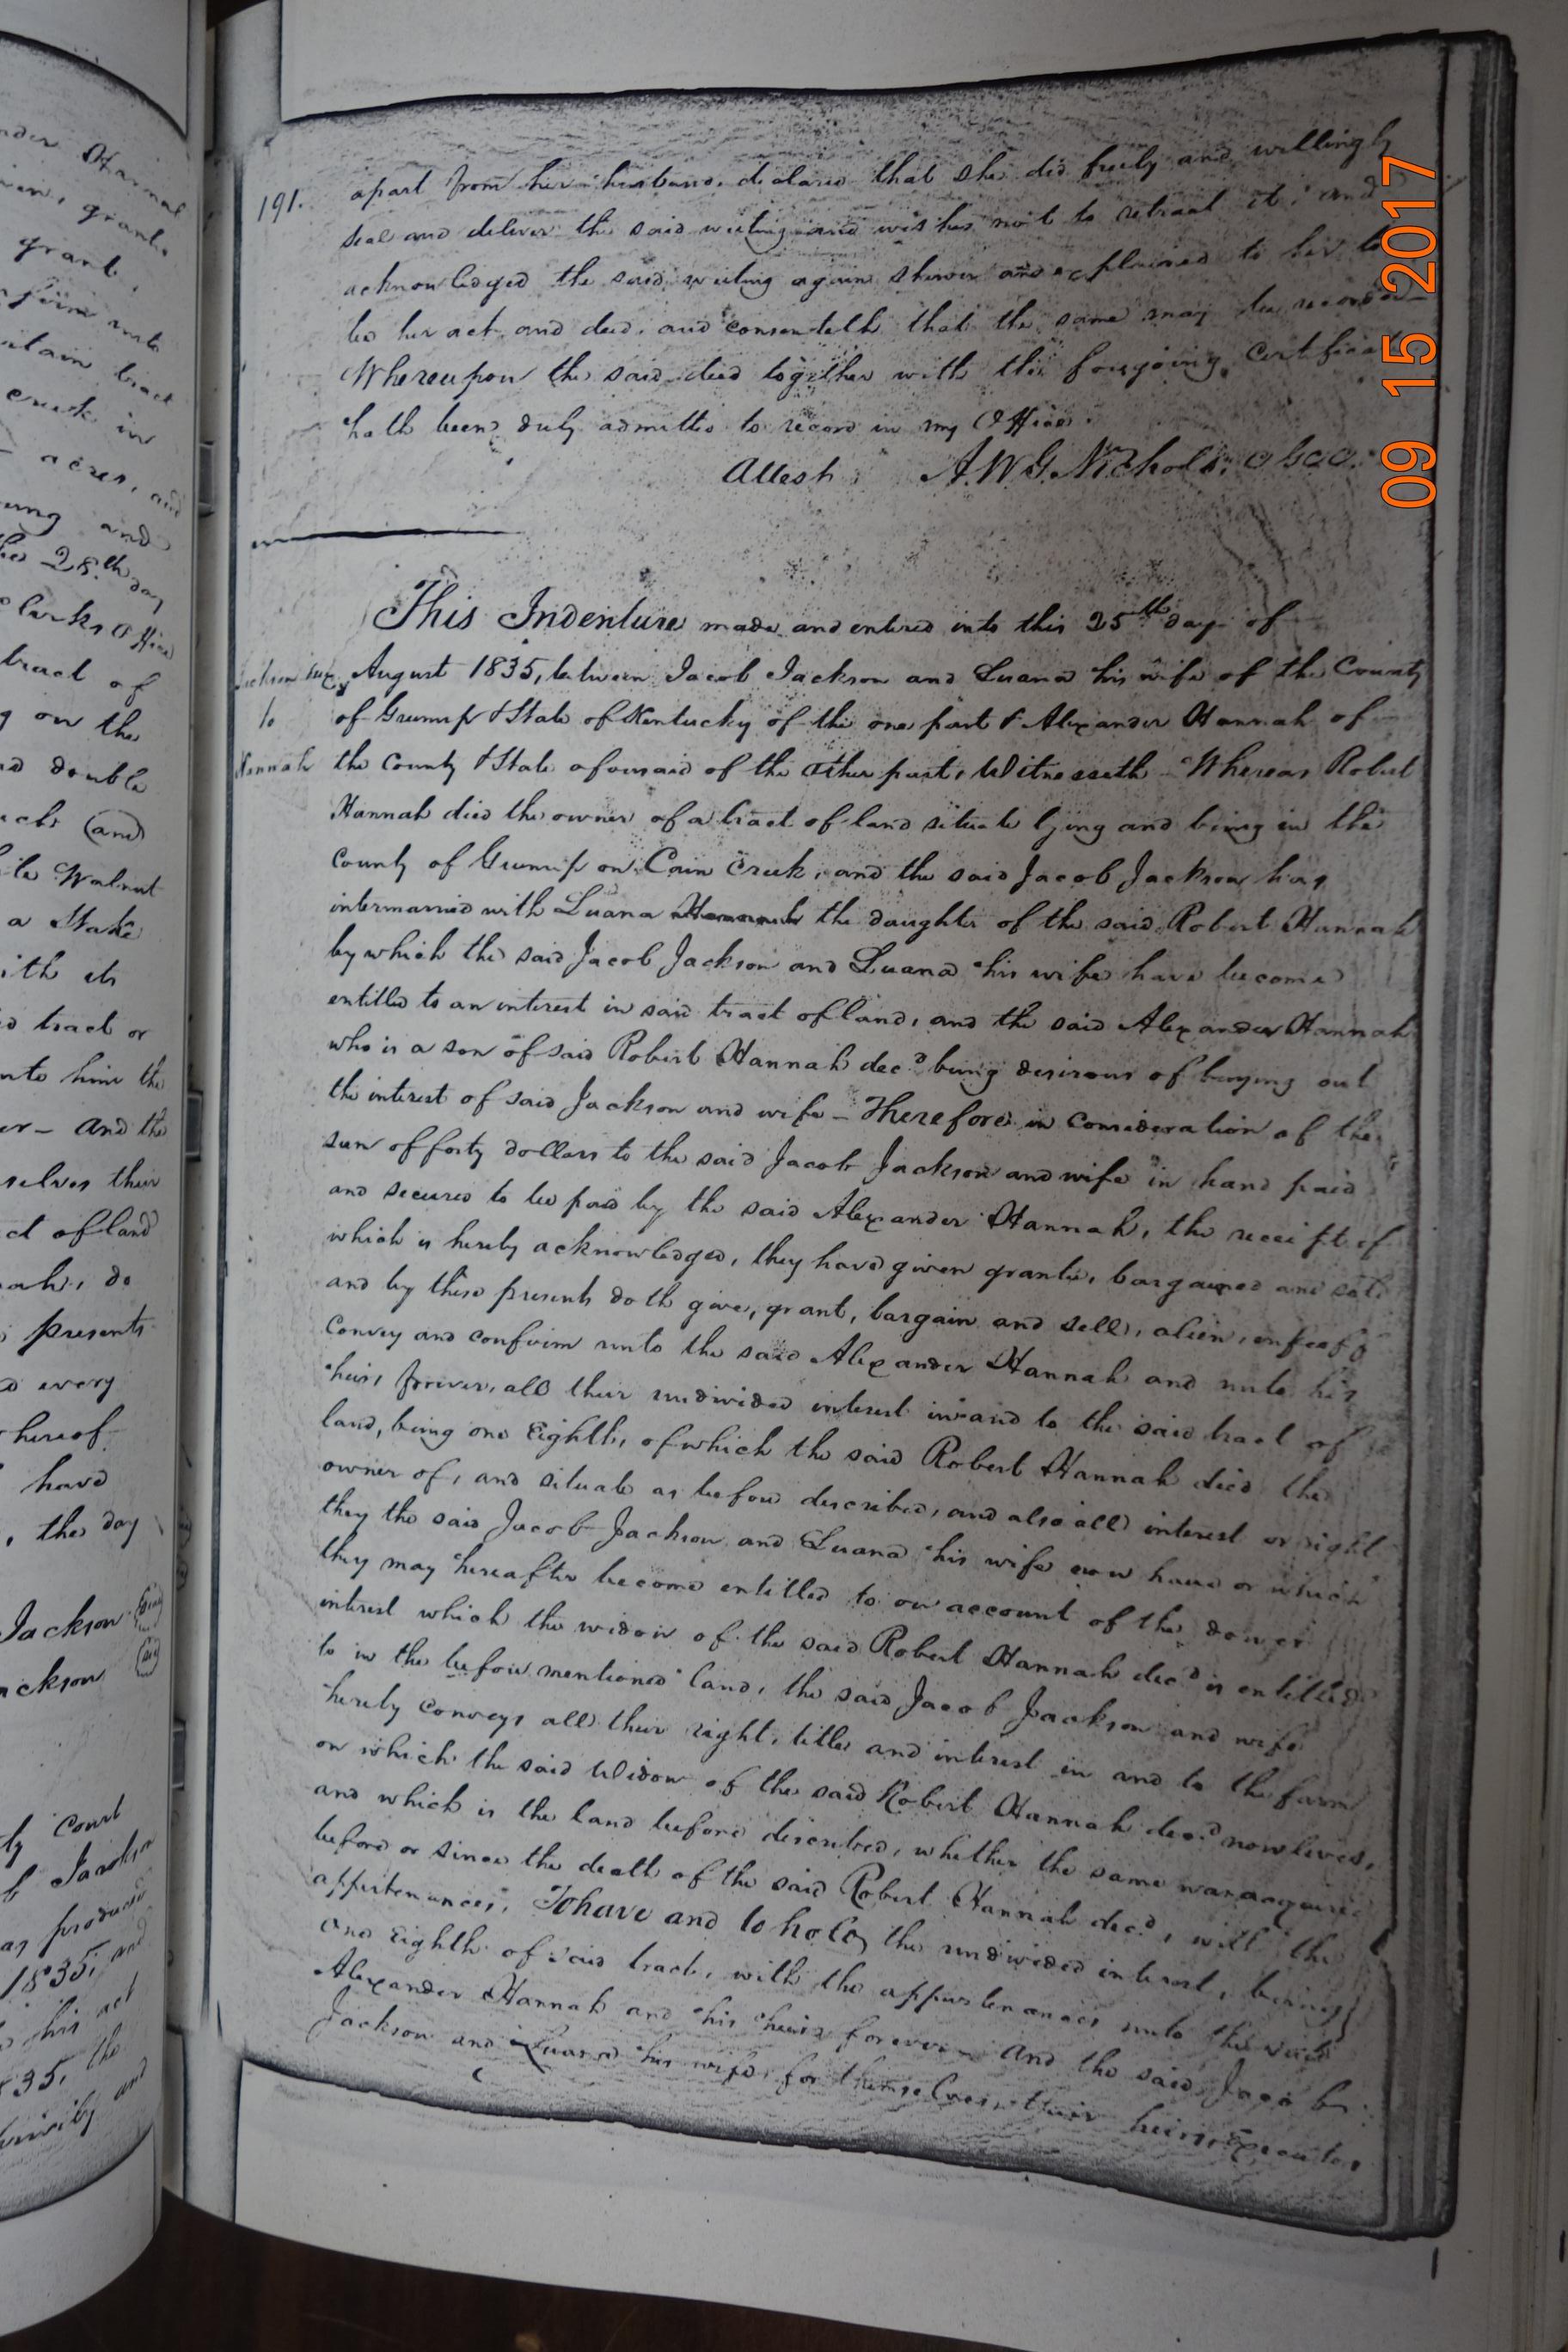 191.
apart from her husband, declared that she did freely and willingly
seal and deliver the said writing and wishes not to retract it; and
acknowledged the said writing again shewn and explained to her to
be her act and deed, and consenteth that the same may be recorded
Whereupon the said deed together with this foregoing Certificate
hath been duly admitted to record in my Office.
Attest A. W. G. Nichols,
This Indenture made and entered into this 25th day of
August 1835, between Jacob Jackson and Luana his wife of the County
to
of Greenup & State of Kentucky of the one part & Alexander Hannah of
Hannah
the County & State aforesaid of the other part, Witnesseth – Whereas Robert
Hannah died the owner of a tract of land situate lying and being in the
County of Greenup on Cain Creek, and the said Jacob Jackson has
intermarried with Luana Hannah the daughter of the said Robert Hannah
by which the said Jacob Jackson and Luana his wife have become
entitled to an interest in said tract of land, and the said Alexander Hannah
who is a son of said Robert Hannah decd being desirous of buying out
the interest of said Jackson and wife – Therefore in consideration of the
sum of forty dollars to the said Jacob Jackson and wife in hand paid
and secured to be paid by the said Alexander Hannah, the receipt of
which is hereby acknowledged, they have given granted, bargained and sold
and by these presents doth give, grant, bargain and sell, alien, enfeoff
convey and confirm unto the said Alexander Hannah and unto his
heirs forever, all their undivided interest in and to the said tract of
land, being one Eighth, of which the said Robert Hannah died the
owner of, and situate as before described, and also all interest or right
they the said Jacob Jackson and Luana his wife now have or which
they may hereafter become entitled to on account of the dower
interest which the widow of the said Robert Hannah decd is entitled
to in the before mentioned land, the said Jacob Jackson and wife
hereby conveys all their right, title and interest in and to the farm
on which the said Widow of the said Robert Hannah decd now lives,
and which is the land before described, whether the same was acquired
before or since the death of the said Robert Hannah decd, with the
appurtenances. To have and to hold the undivided interest, being
one Eighth of said tract, with the appurtenances unto the said
Alexander Hannah and his heirs forever – And the said Jacob
Jackson and Luana his wife, for themselves, their heirs, Executors
09 15 2017
grant
creek in
acres, and
and
28th day
Clerks Office
tract of
on the
double
(and)
Walnut
a Stake
with its
tract or
unto him the
And the
their
of land
do
presents
every
hereof
have
, the day
Jackson
Jackson
Court
Jackson
produced
1835, and
his act
the
and